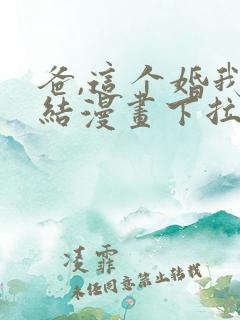 爸,這个婚我
結漫畫下拉
凌霏
未经同意禁止转载